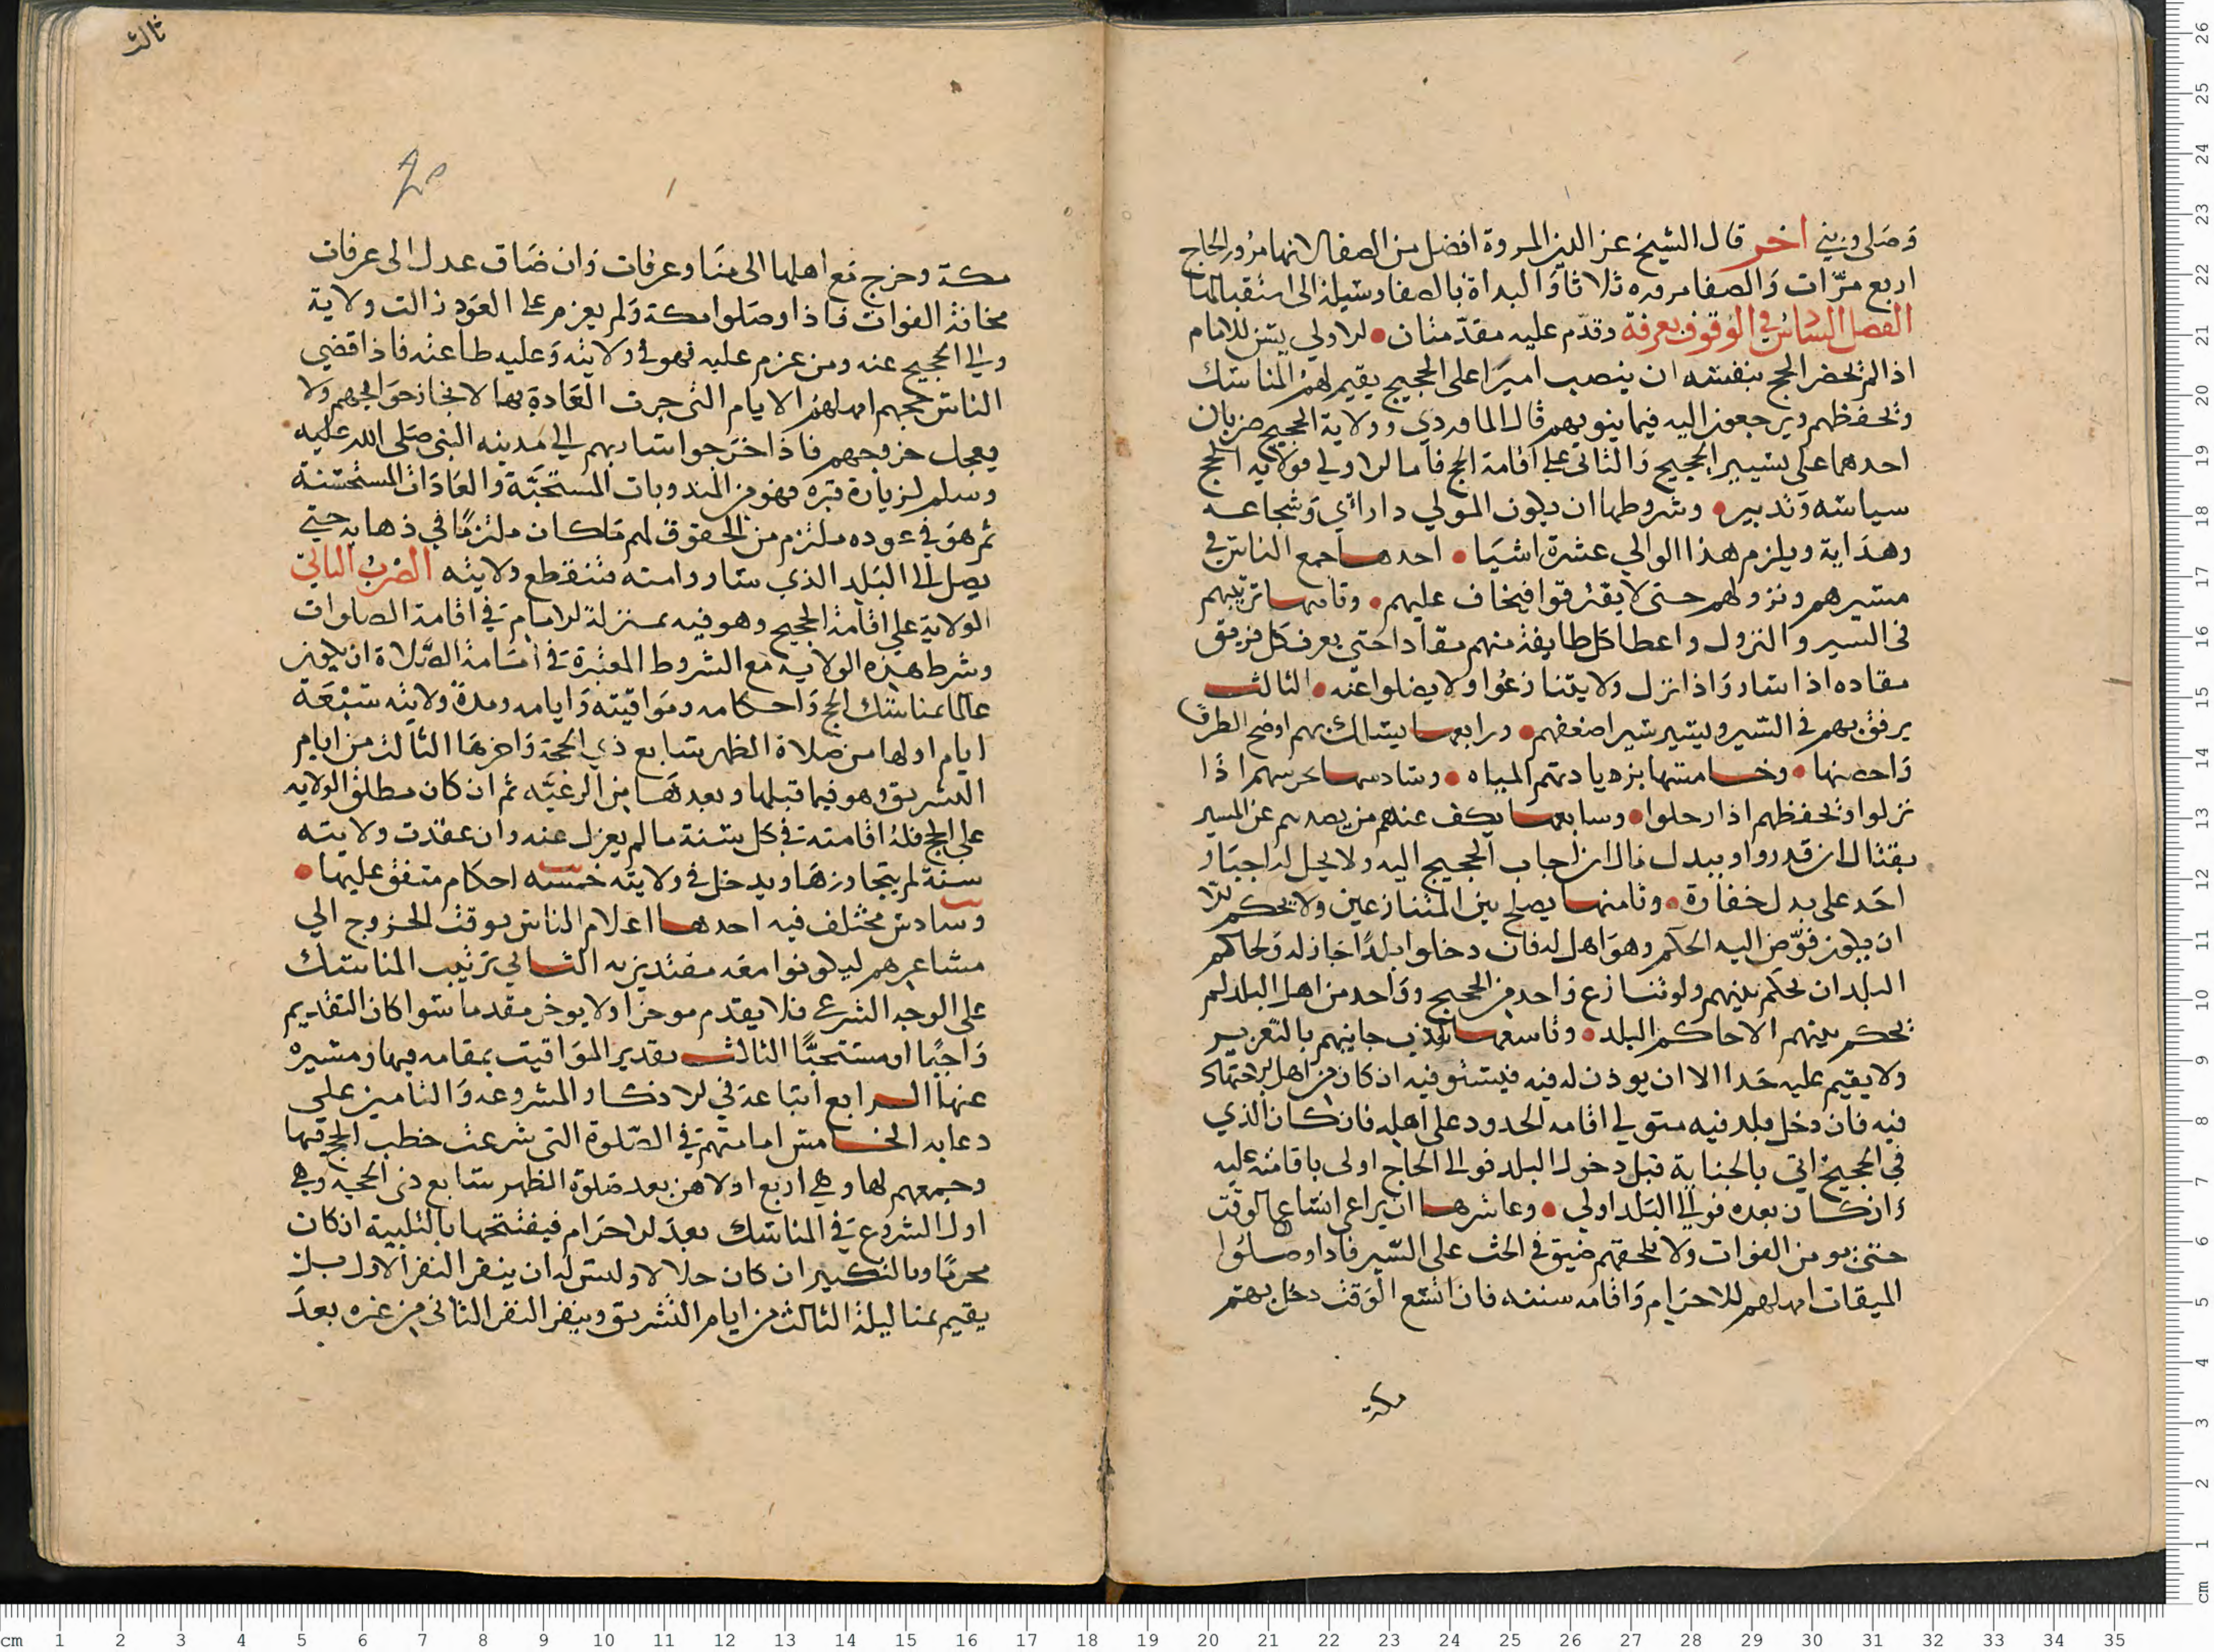 وصلى وبني اخر قال الشيخ عز الدين المروة افضل من الصفا لانها مزور الحاج
اربع مرات والصفا مروره ثلاثا والبداة بالصفا وسيلة الى استقبالها
الفصل السادس في الوقوف بعرفة وقدم عليه مقدمتان الاولى يسن للامام
اذا لم يحضر الحج بنفسه ان ينصب اميرا على الحجيج يقيم لهم المناسك
ويحفظهم ويرجعون اليه فيما ينوبهم قال الماوردي وولاية الحجيج ضربان
احدهما على تسيير الحجيج والثاني على اقامة الحج فاما الاولى فولاية الحج
سياسه وتدبير وشروطها ان يكون المولى ذا راي وشجاعه
وهداية ويلزم هذا الوالي عشرة اشيا احدها جمع الناس في
مسيرهم ونزولهم حتى لا يفترقوا فيخاف عليهم وثانيها ترتيبهم
في السير والنزول واعطا كل طايفة منهم مقادا حتى يعرف كل فريق
مقاده اذا سار واذا نزل ولا يتنازعوا ولا يضلوا عنه الثالث
يرفق بهم في السير ويسير سير اضعفهم ورابعها يسالك بهم اوضح الطرق
واحصنها وخامسها يزد يادتهم المياه وسادسها يحرسهم اذا
نزلوا ويحفظهم اذا رحلوا وسابعها يكف عنهم من يصدهم عن المسير
بقتال ان قدروا وببدل مال ان اجاب الحجيج اليه ولا يحل له اجبار
احد على بدل خفارة وثامنها يصلح بين المتنازعين ولا يحكم الا
ان يكون فوض اليه الحكم وهو اهل له فان دخلوا بلدا جاز له ولحاكم
البلد ان يحكم بينهم ولو تنازع واحد من الحجيج وواحد من اهل البلد لم
يحكم بينهم الا حاكم البلد وتاسعها يودب جانيهم بالتعزير
ولا يقيم عليه حدا الا ان يوذن له فيه فيستوفيه ان كان من اهل الاجتهاد
فيه فان دخل بلد فيه متولي اقامه الحدود على اهله فان كان الذي
في الحجيج اتى بالجناية قبل دخول البلد فوالي الحاج اولى باقامته عليه
وان كان بعده فوالي البلد اولى وعاشرها ان يراعي اتساع الوقت
حتى يومن الفوات ولا يلحقهم ضيق في الحث على السير فاذا وصلوا
الميقات امهلهم للاحرام واقامه سننه فان اتسع الوقت دخل بهم
مكة
ثالث
مكة وخرج مع اهلها الى منا وعرفات وان ضاق عدل الى عرفات
مخافة الفوات فاذا وصلوا مكة ولم يعزم على العود زالت ولاية
والي الحجيج عنه ومن عزم عليه فهو في ولايته وعليه طاعته فاذا قضي
الناس حجهم امهلهم الايام التي جرت العادة بها لانجاز حوايجهم ولا
يعجل خروجهم فاذا خرجوا سار بهم الى مدينه النبي صلى الله عليه
وسلم لزيارة قبره فهو من المندوبات المستحبة والعادات المستحسنة
ثم هو في عوده ملتزم من الحقوق لهم ما كان ملتزما في ذهابه حتى
يصل الى البلد الذي سار وامنه فتنقطع ولايته الضرب الثاني
الولاية على اقامة الحجيج وهو فيه بمنزلة الامام في اقامة الصلوات
وشرط هذه الولاية مع الشروط المعتبرة في امامة الصلاة ان يكون
عالما بمناسك الحج واحكامه ومواقيته وايامه ومدة ولايته سبعة
ايام اولها من صلاة الظهر سابع ذي الحجة واخرها الثالث من ايام
التشريق وهو فيما قبلها وبعدها من الرعيه ثم ان كان مطلق الولايه
على الحج فله اقامته في كل سنة ما لم يعزل عنه وان عقدت ولايته
سنة لم يتجاوزها ويدخل في ولايته خمسه احكام متفق عليها
وسادس مختلف فيه احدها اعلام الناس بوقت الخروج الي
مشاعرهم ليكونوا معه مقتدين به الثاني ترتيب المناسك
على الوجه الشرعي فلا يقدم موخرا ولا يوخر مقدما سوا كان التقديم
واجبا او مستحبا الثالث تقدير المواقيت بمقامه فيها ومسيره
عنها الرابع اتباعه في الاذكار المشروعه والتامين على
دعايه الخامس امامتهم في الصلوة التي شرعت خطب الحج فيها
وجمعهم لها وهي اربع اولاهن بعد صلوة الظهر سابع ذي الحجه وهي
اول الشروع في المناسك بعد الاحرام فيفتتحها بالتلبية ان كان
محرما وبالتكبير ان كان حلالا وليس له ان ينفر النفر الاول بل
يقيم بمنا ليلة الثالث من ايام التشريق وينفر النفر الثاني من غده بعد